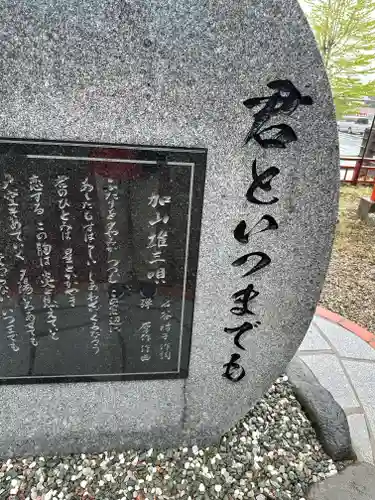 君といつまでも
加山雄三 唄
岩谷時子 作詞
弾 厚作 作曲
ふたりを夕やみが つつむこの窓辺に
あしたもすばらしい しあわせがくるだろう
君のひとみは 星とかがやき
恋する この胸は 炎と燃えている
大空そめてゆく 夕陽いろあせても
いつまでも